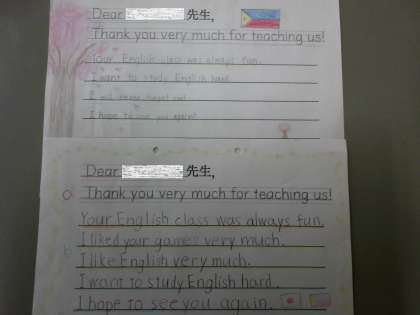 Dear 先生,
Thank you very much for teaching us!
Your English class was always fun.
I want to study English hard.
I will never forget you!
I hope to see you again!
Dear 先生,
Thank you very much for teaching us!
Your English class was always fun.
I liked your games very much.
I like English very much.
I want to study English hard.
I hope to see you again.